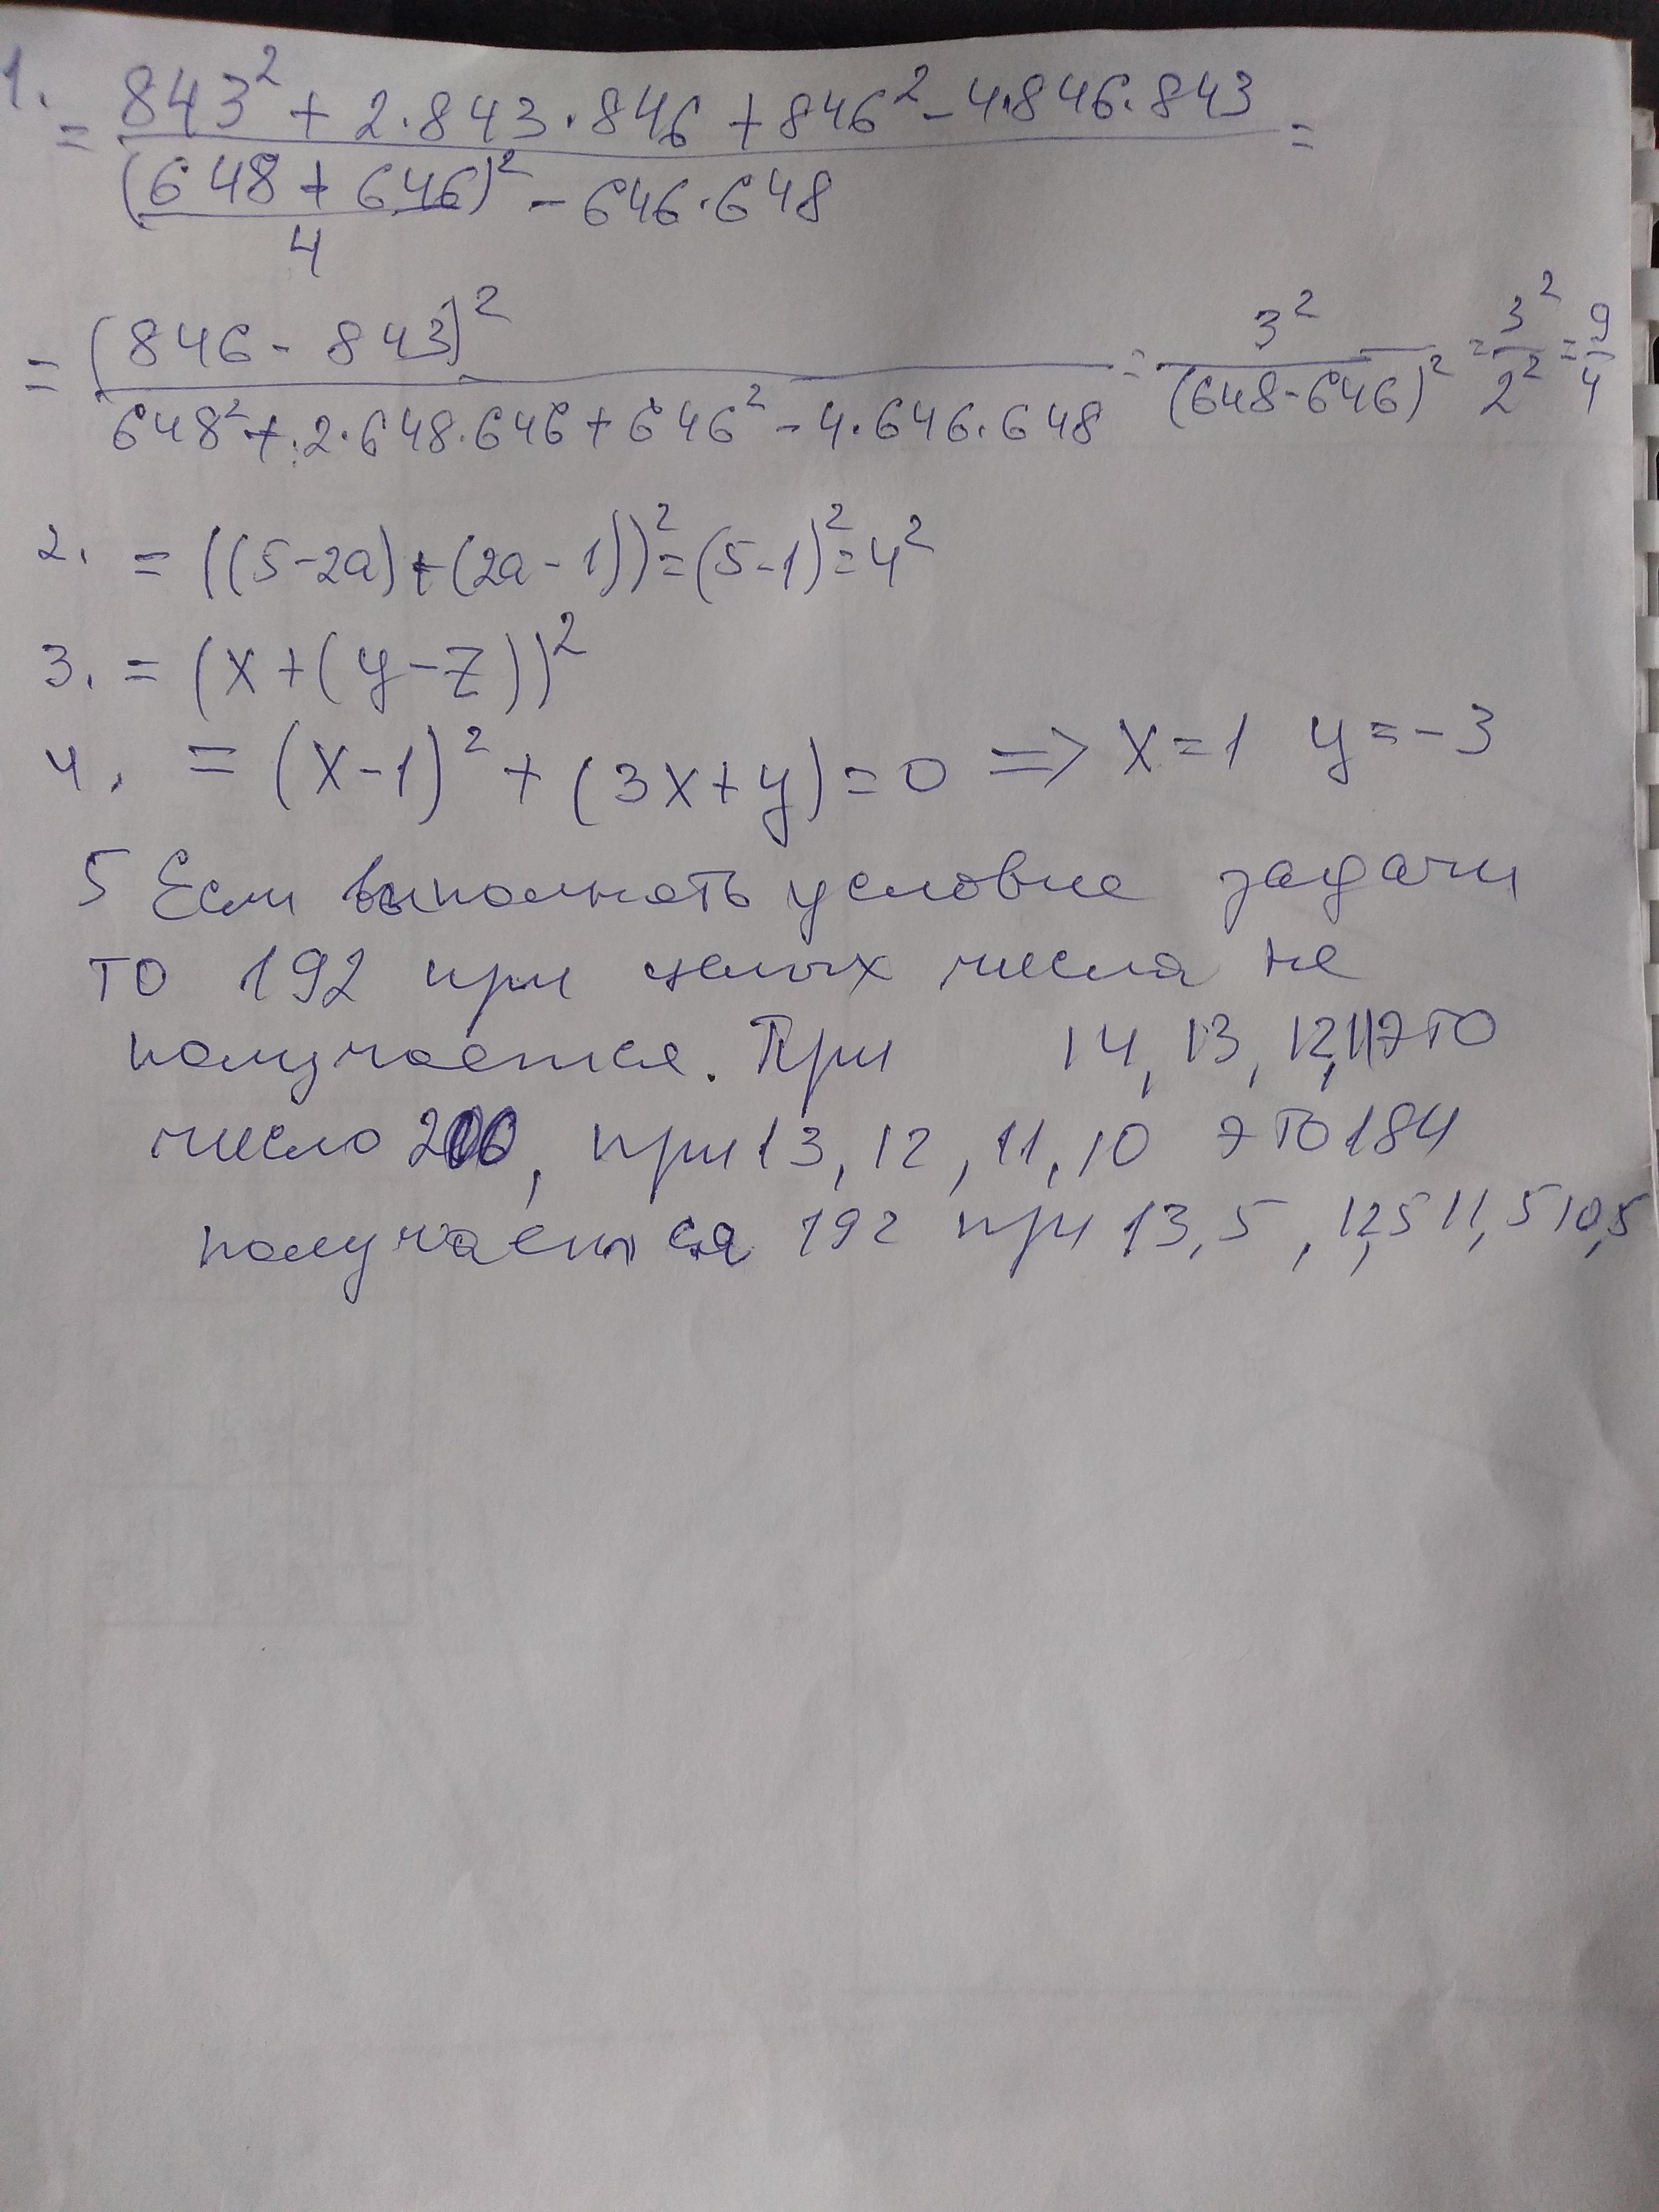 1. = (843² + 2·843·846 + 846² - 4·846·843) / ((648 + 646)² / 4 - 646·648) =
= (846 - 843)² / (648² + 2·648·646 + 646² - 4·646·648) = 3² / (648-646)² = 3² / 2² = 9/4
2. = ((5-2a)+(2a-1))² = (5-1)² = 4²
3. = (x+(y-z))²
4. = (x-1)² + (3x+y) = 0 => x=1 y=-3
5 Если выполнять условие задачи
то 192 при целых числа не
получается. При 14, 13, 12, 11 это
число 200, при 13, 12, 11, 10 это 184
получается 192 при 13,5, 12,5 11,5 10,5